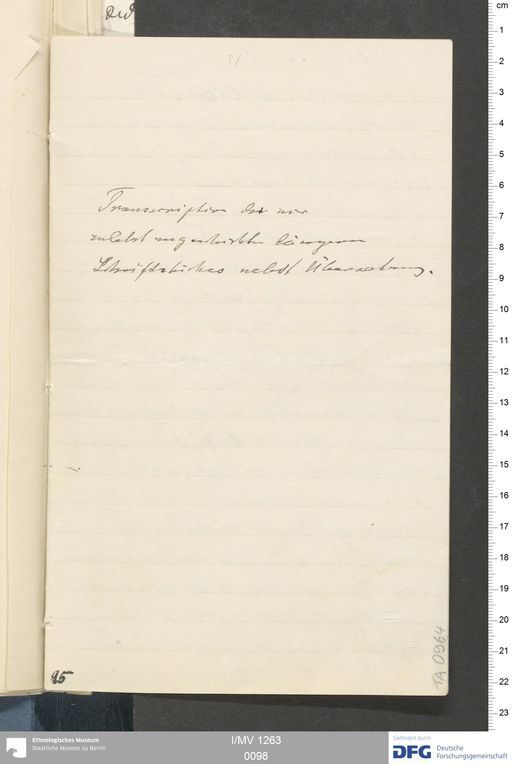 31
Transcription der mir
zuletzt zugeschickten längeren
Schriftstückes nebst Übersetzung.
95
TA 0964
cm
1
2
3
4
5
6
7
8
9
10
11
12
13
14
15
16
17
18
19
20
21
22
23
Ethnologisches Museum
Staatliche Museen zu Berlin
I/MV 1263
0098
Gefördert durch
DFG Deutsche
Forschungsgemeinschaft